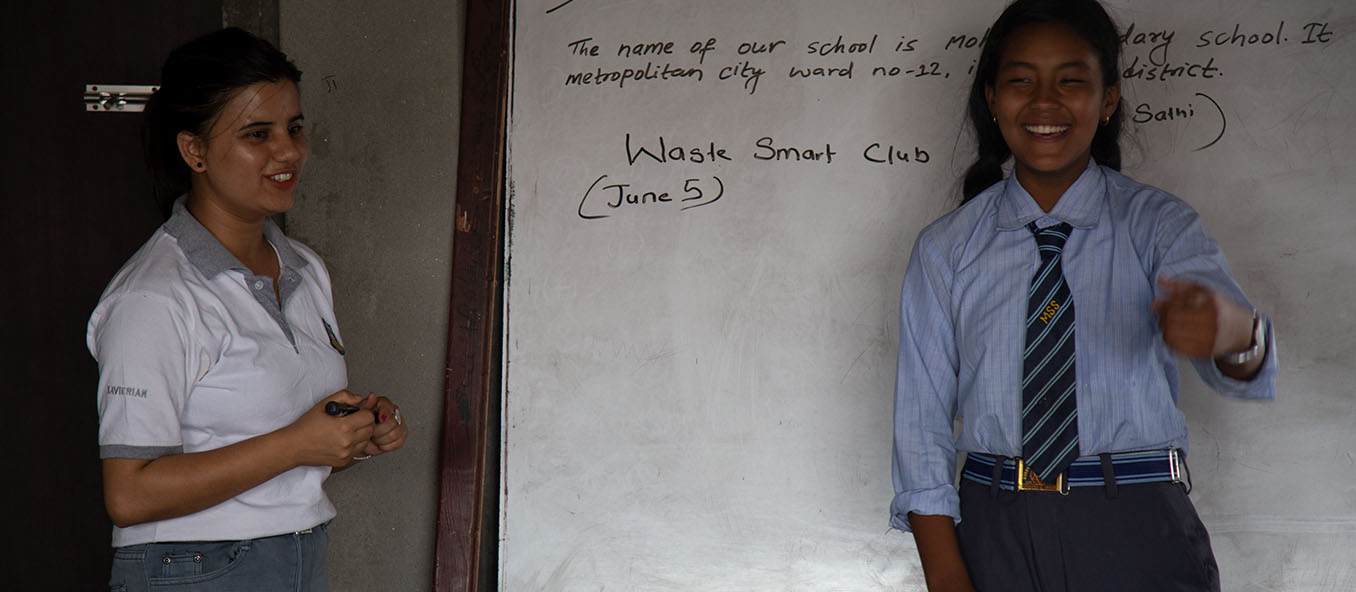 The name of our school is Mo dary school. It
metropolitan city ward no-12, i district.
Sathi)
Waste Smart Club
(June 5)
MSS
AVIERIAN